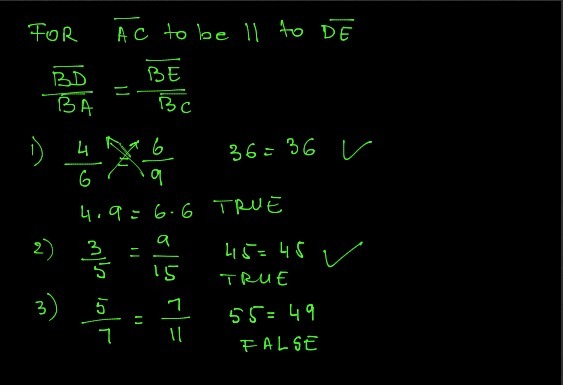 FOR AC to be || to DE
BD/BA = BE/BC
1) 4/6 = 6/9 36 = 36 ✓
4 . 9 = 6 . 6 TRUE
2) 3/5 = 9/15 45 = 45 ✓
TRUE
3) 5/7 = 7/11 55 = 49
FALSE